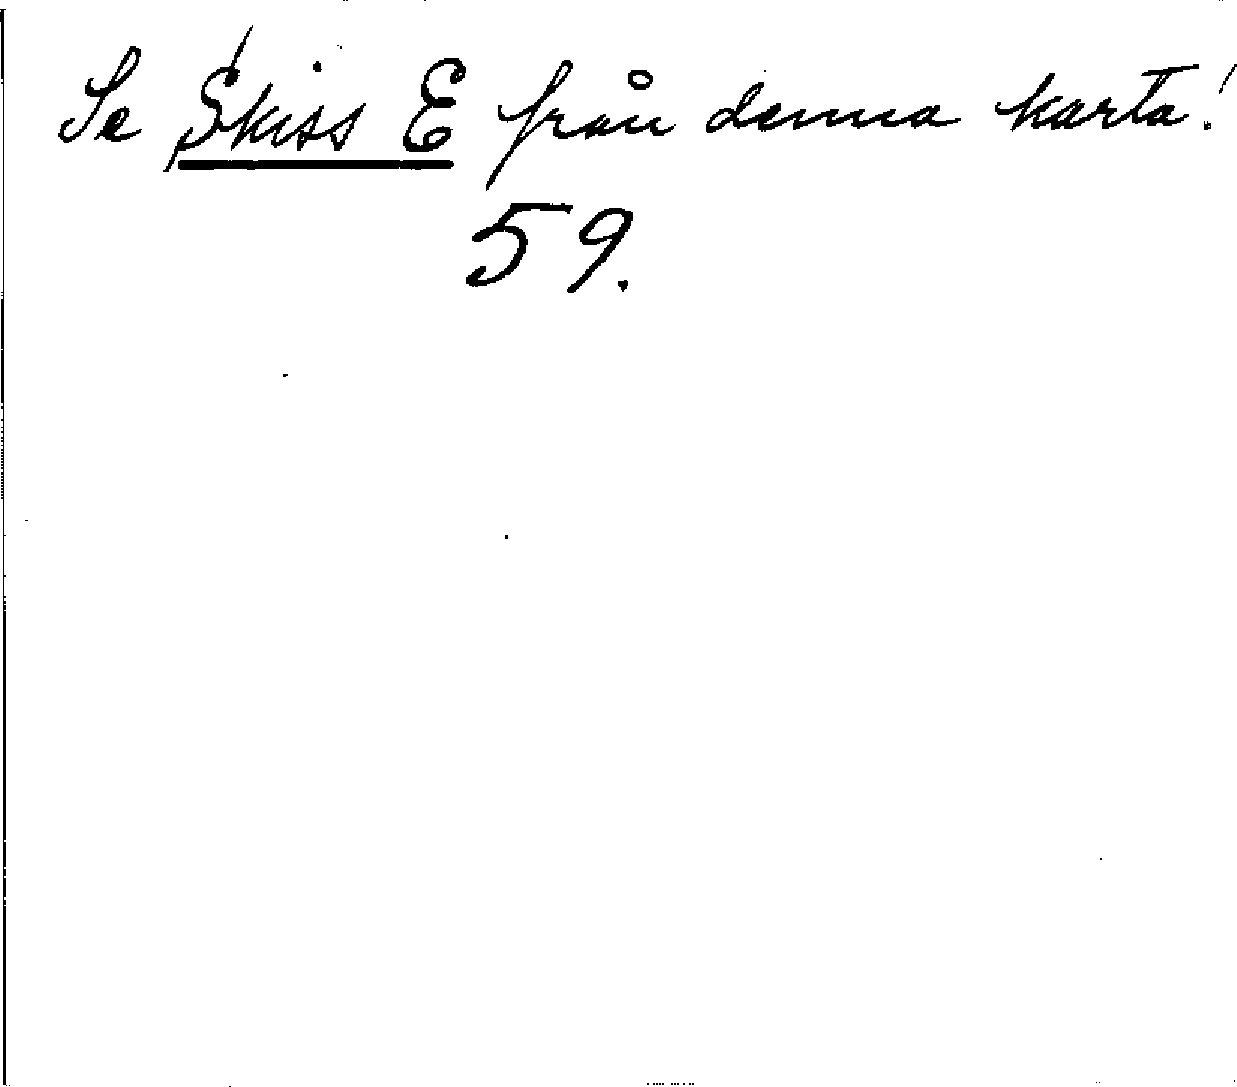 Se Skiss E från denna karta!
59.